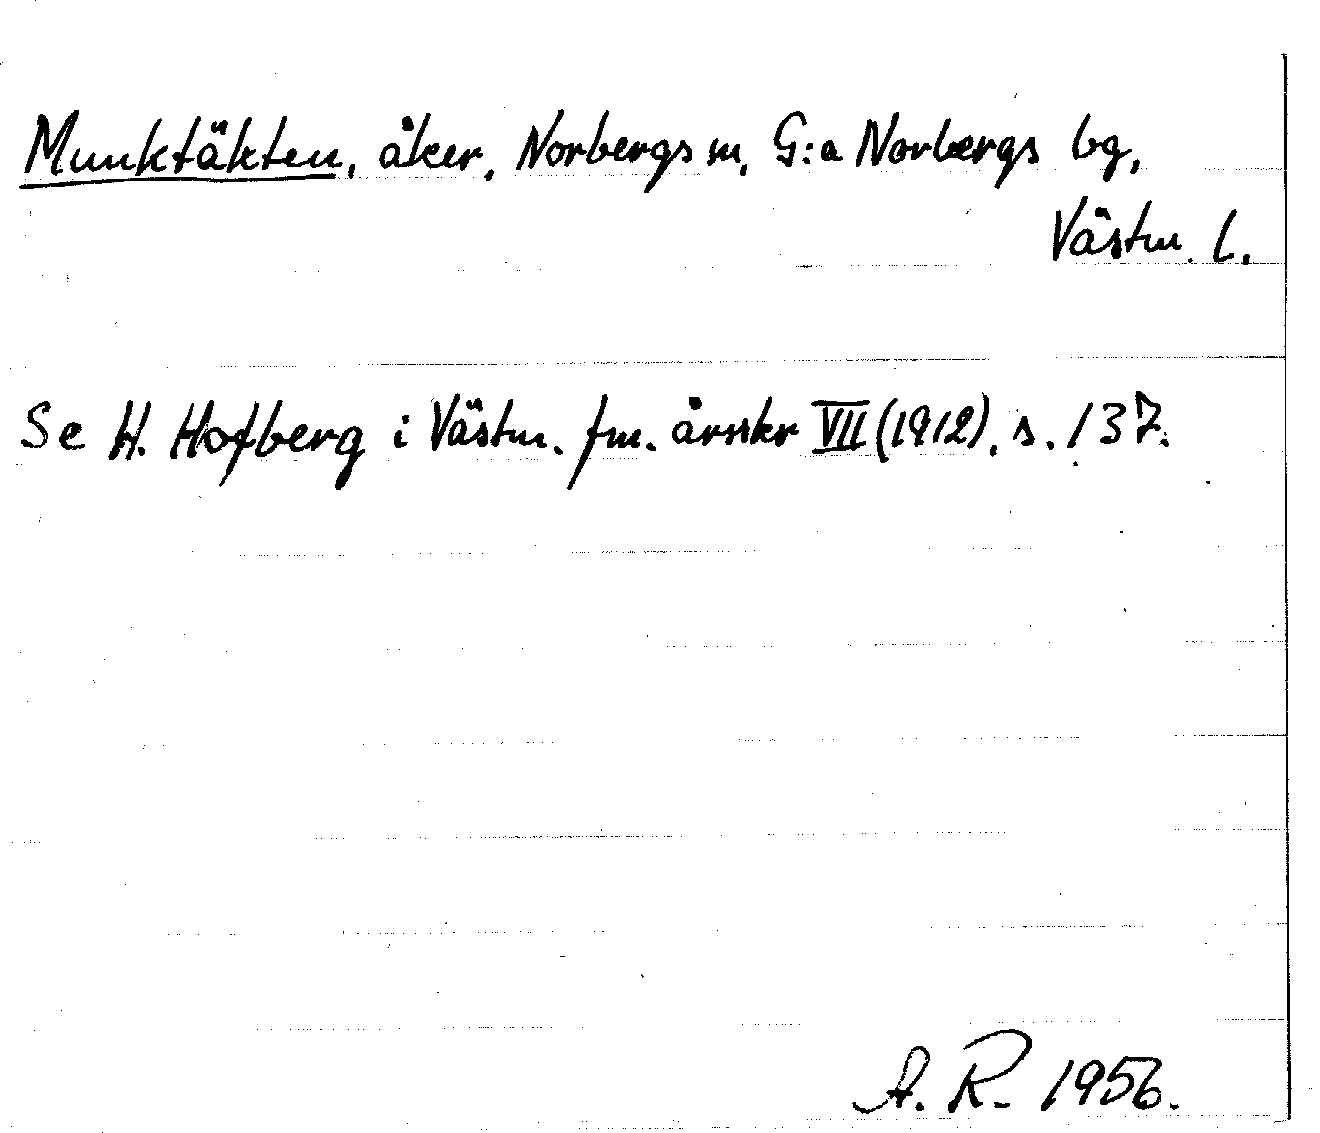 Munktäkten, åker, Norbergs sn, G:a Norbergs bg,
Västm. l.
Se H. Hofberg i Västm. fm. årsskr VII (1912), s. 137.
A. R. 1956.